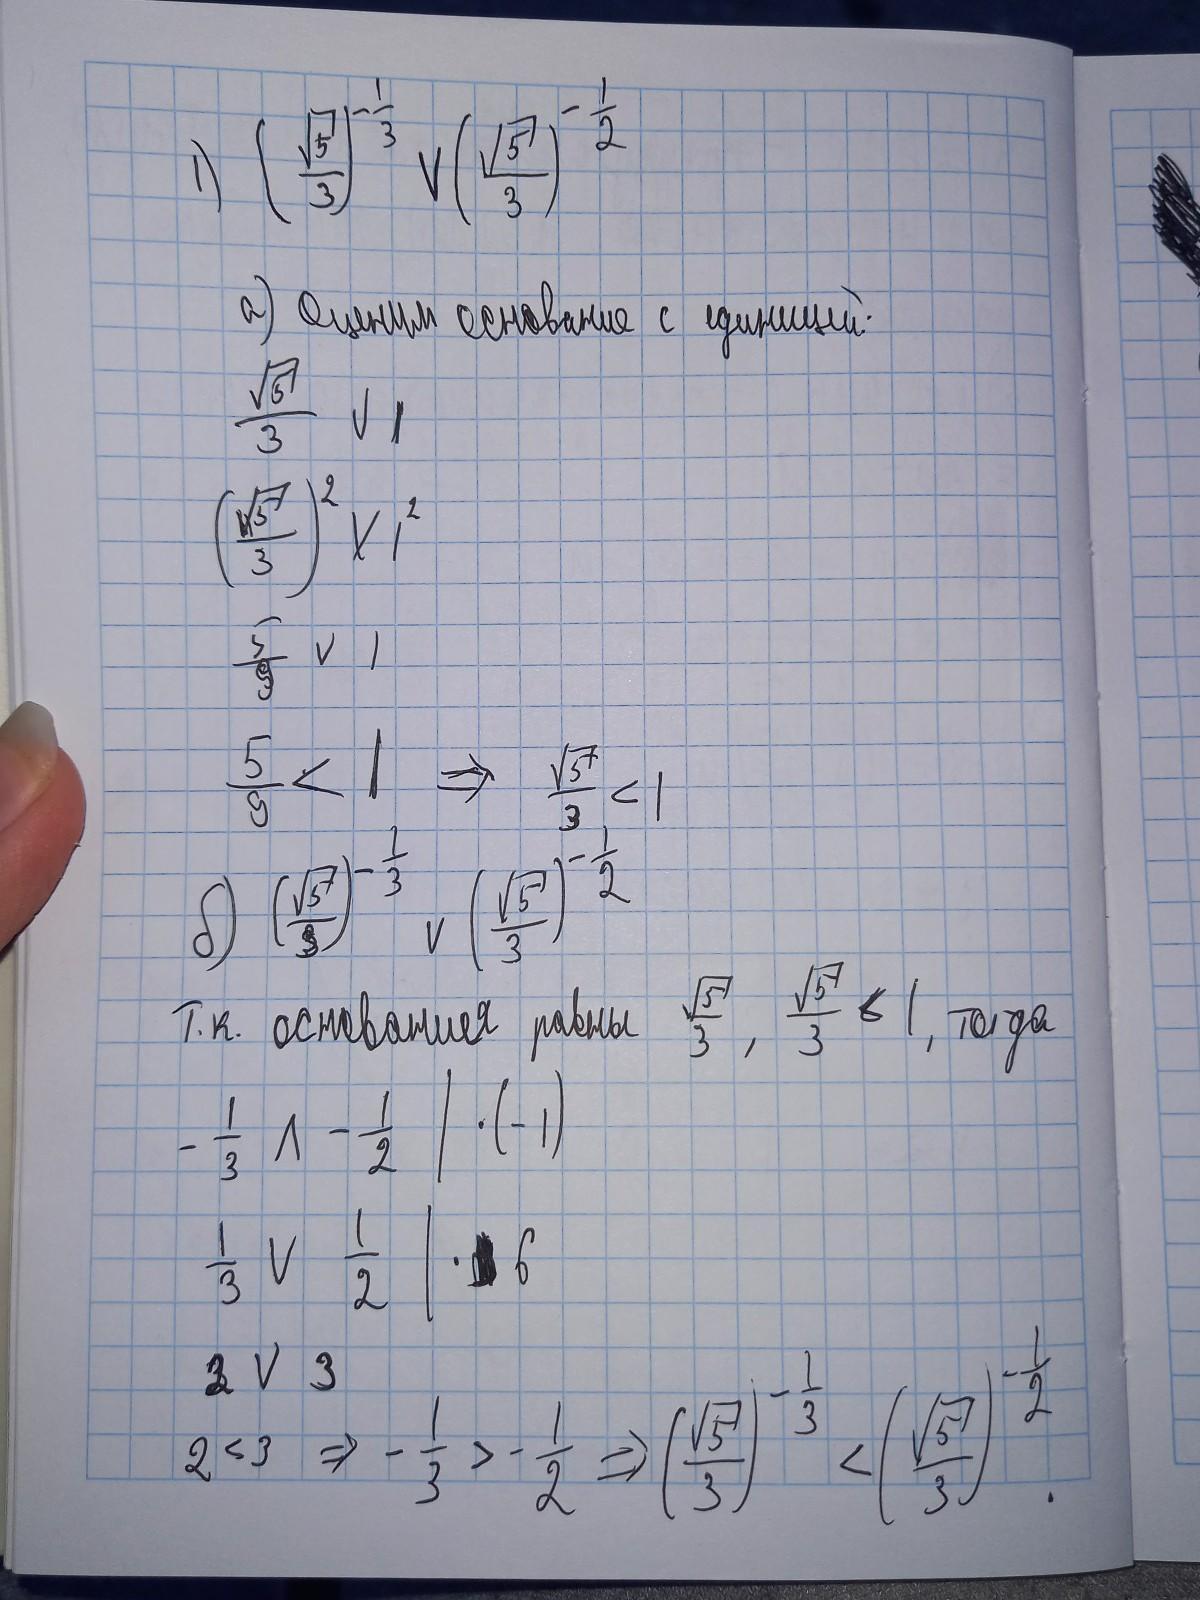 1) (√5/3)^(-1/3) ∨ (√5/3)^(-1/2)
а) Оценим основание с единицей:
√5/3 ∨ 1
(√5/3)^2 ∨ 1^2
5/9 ∨ 1
5/9 < 1 ⇒ √5/3 < 1
б) (√5/3)^(-1/3) ∨ (√5/3)^(-1/2)
Т.к. основания равны √5/3, √5/3 < 1, тогда
-1/3 ∧ -1/2 | ·(-1)
1/3 ∨ 1/2 | ·6
2 ∨ 3
2 < 3 ⇒ -1/3 > -1/2 ⇒ (√5/3)^(-1/3) < (√5/3)^(-1/2).